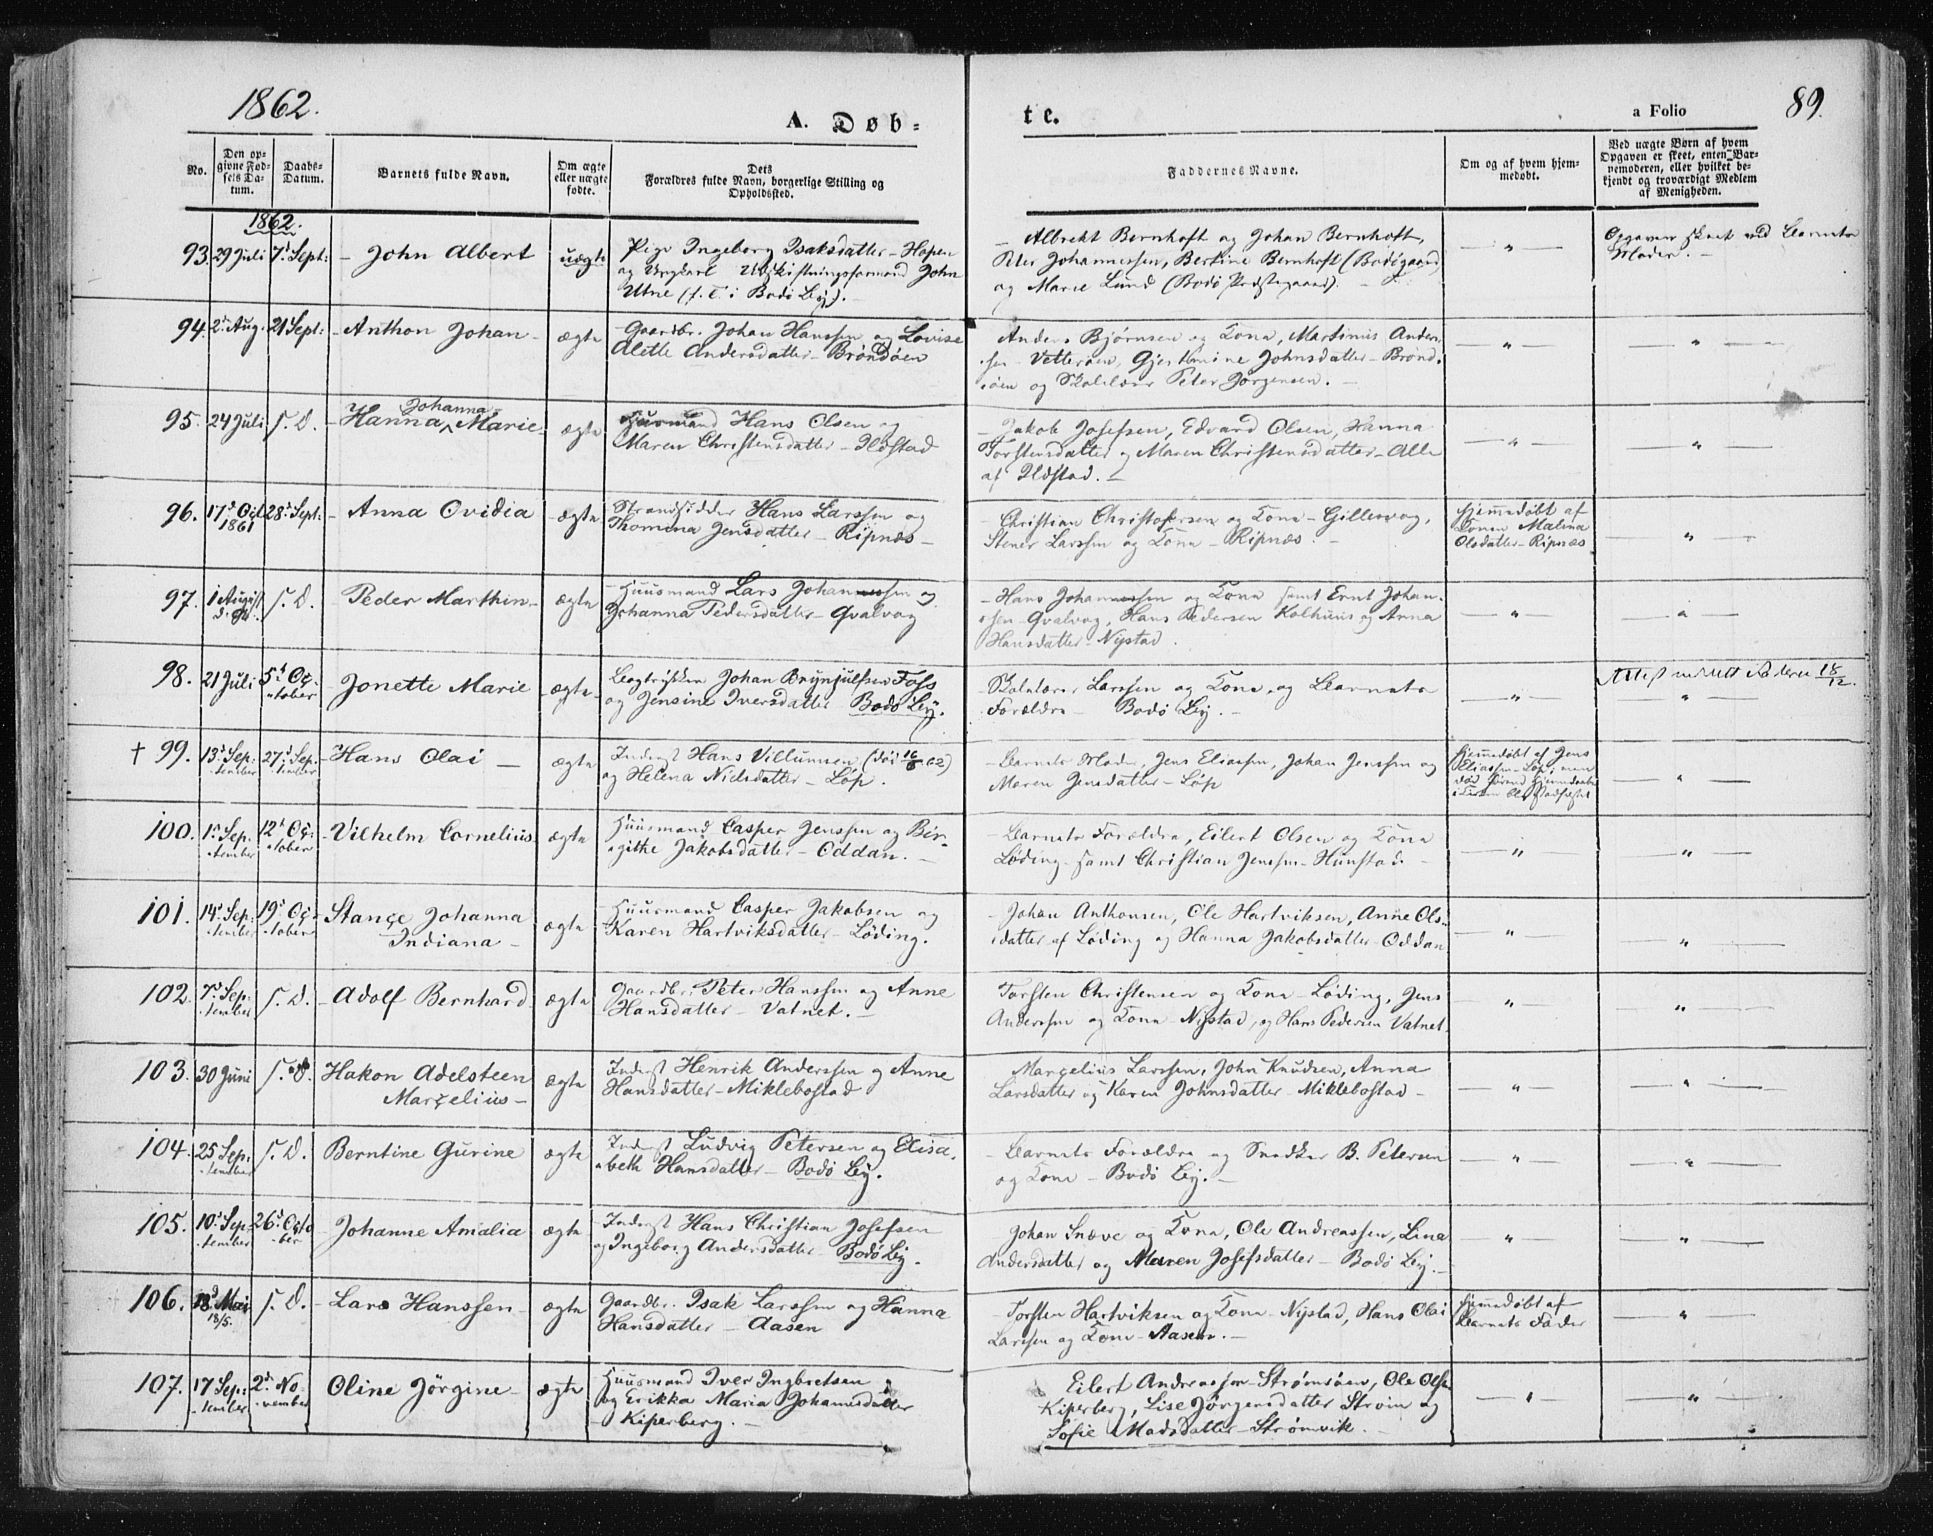 1862.
A. Døb-
te.
a Folio
89.
No.
Den opgivne Fødsels Datum.
Daabs-Datum.
Barnets fulde Navn.
Om ægte eller uægte fødte.
Dets Forældres fulde Navn, borgerlige Stilling og Opholdssted.
Faddernes Navne.
Om og af hvem hjemmedøbt.
Ved uægte Børn af hvem Opgaven er skeet, enten Barnemoderen, eller hvilket bekjendt og troværdigt Medlem af Menigheden.
1862.
93. 29 Juli 7d Sept: - John Albert uægte Pige Ingeborg Isaksdatter - Hopen
og Ungkarl Udskiftningsformand John
Utne (f. T. i Bodö By). -
- Albrekt Bernhoft og Johan Bernhoft,
Peter Johannessen, Bertine Bernhoft (Bodögaard)
og Marie Lund (Bodö Præstegaard). -
Opgaven skeet ved Barnets
Moder. -
94. 2d Aug. 21 Sept: - Anthon Johan - ægte Gaardbr. Johan Hanssen og Lovise
Alette Andersdatter - Bröndöen
Anders Bjørnsen og Kone, Martinus Anders-
sen - Vetteröen, Gjertmine Johnsdatter - Brönd-
öen og Skolelærer Peter Jörgensen. -
95. 24 Juli S. D. - Hanna Johanna Marie - ægte Huusmand Hans Olsen og
Maren Christensdatter - Ildstad
- Jakob Josefsen, Edvard Olsen, Hanna
Torstensdatter og Maren Christensdatter - Alle
af Ildstad. -
96. 17d Oct 1861 28d Sept: - Anna Ovidia - ægte Strandsidder Hans Larssen og
Thomina Jensdatter - Ripnæs -
- Christian Christofersen og Kone - Gillesvog,
Stener Larssen og Kone - Ripnæs. -
Hjemmedöbt af
Konen Malena
Olsdatter - Ripnæs
97. 1 August S. D. - Peder Marthin - ægte Huusmand Lars Johannessen og
Johanna Pedersdatter - Qvalvog
- Hans Johannessen og Kone samt Ernt Johan-
sen - Qvalvog, Hans Pedersen Kolhuus og Anna
Hansdatter - Nystad.
98. 21 Juli 5d October - Jonette Marie - ægte - Bogtrykker Johan Brynjulfsen Foss
og Jensine Iversdatter Bodö By.
- Skolelærer Larssen og Kone, og Barnets
Forældre - Bodö By. -
Attest 18/12.
† 99. 13d September 27d September - Hans Olai - ægte Inderst Hans Villumsen
og Helena Nielsdatter - Löp.
- Barnets Moder, Jens Eliassen, Johan Jenssen og
Maren Jensdatter - Löp
Hjemmedöbt af Jens
Eliassen - Löp,
100. 1d September 12d October - Vilhelm Cornelius ægte Huusmand Casper Jenssen og Bir-
githe Jakobsdatter - Oddan. -
- Barnets Forældre, Eilert Olsen og Kone
Löding - samt Christian Jenssen - Hunstad -
101. 14d September 19d October - Stance Johanna
Indiana - ægte Huusmand Casper Jakobsen og
Karen Hartviksdatter - Löding.
- Johan Anthonsen, Ole Hartviksen, Anne Ols-
datter af Löding og Hanna Jakobsdatter - Oddan
102. 7d September S. D. - Adolf Bernhard ægte Gaardbr. Peter Hanssen og Anne
Hansdatter - Vatnet. -
Torsten Christensen og Kone - Löding, Jens
Anderssen og Kone - Nystad, og Hans Pedersen Vatnet.
103. 30 Juni S. D. Hakon Adelsteen
Marcelius - ægte Inderst Henrik Anderssen og Anne
Hansdatter - Miklebostad
Marcelius Larssen, John Knudsen, Anna
Larsdatter og Karen Johnsdatter - Miklebostad -
104. 25 September S. D. Berntine Gurine ægte Inderst Ludvig Petersen og Elisa-
beth Hansdatter - Bodö By.
- Barnets Forældre og Snedker B. Petersen
og Kone - Bodö By. -
105. 10d September 26d October - Johanne Amalia ægte Inderst Hans Christian Josefsen
og Ingeborg Andersdatter - Bodö By.
Johan Snæve og Kone, Ole Andreassen, Lina
Andersdatter og Maren Josefsdatter - Bodö By. -
106. 18d Mai 18/5. S. D. - Lars Hanssen - ægte Gaardbr. Isak Larssen og Hanna
Hansdatter - Aasen
- Torsten Hartviksen og Kone - Nystad, Hans Olai
Larssen og Kone - Aasen. -
Hjemmedöbt af
Barnets Fader
107. 17 September 2d November Oline Jörgine - ægte Huusmand Iver Ingbretsen
og Erikka Maria Johannesdatter
- Kiperberg. -
Eilert Andreassen - Strömsöen, Ole Olsen
Kiperberg, Lise Jörgensdatter Ström og
Sofie Madsdatter - Strömvik. -